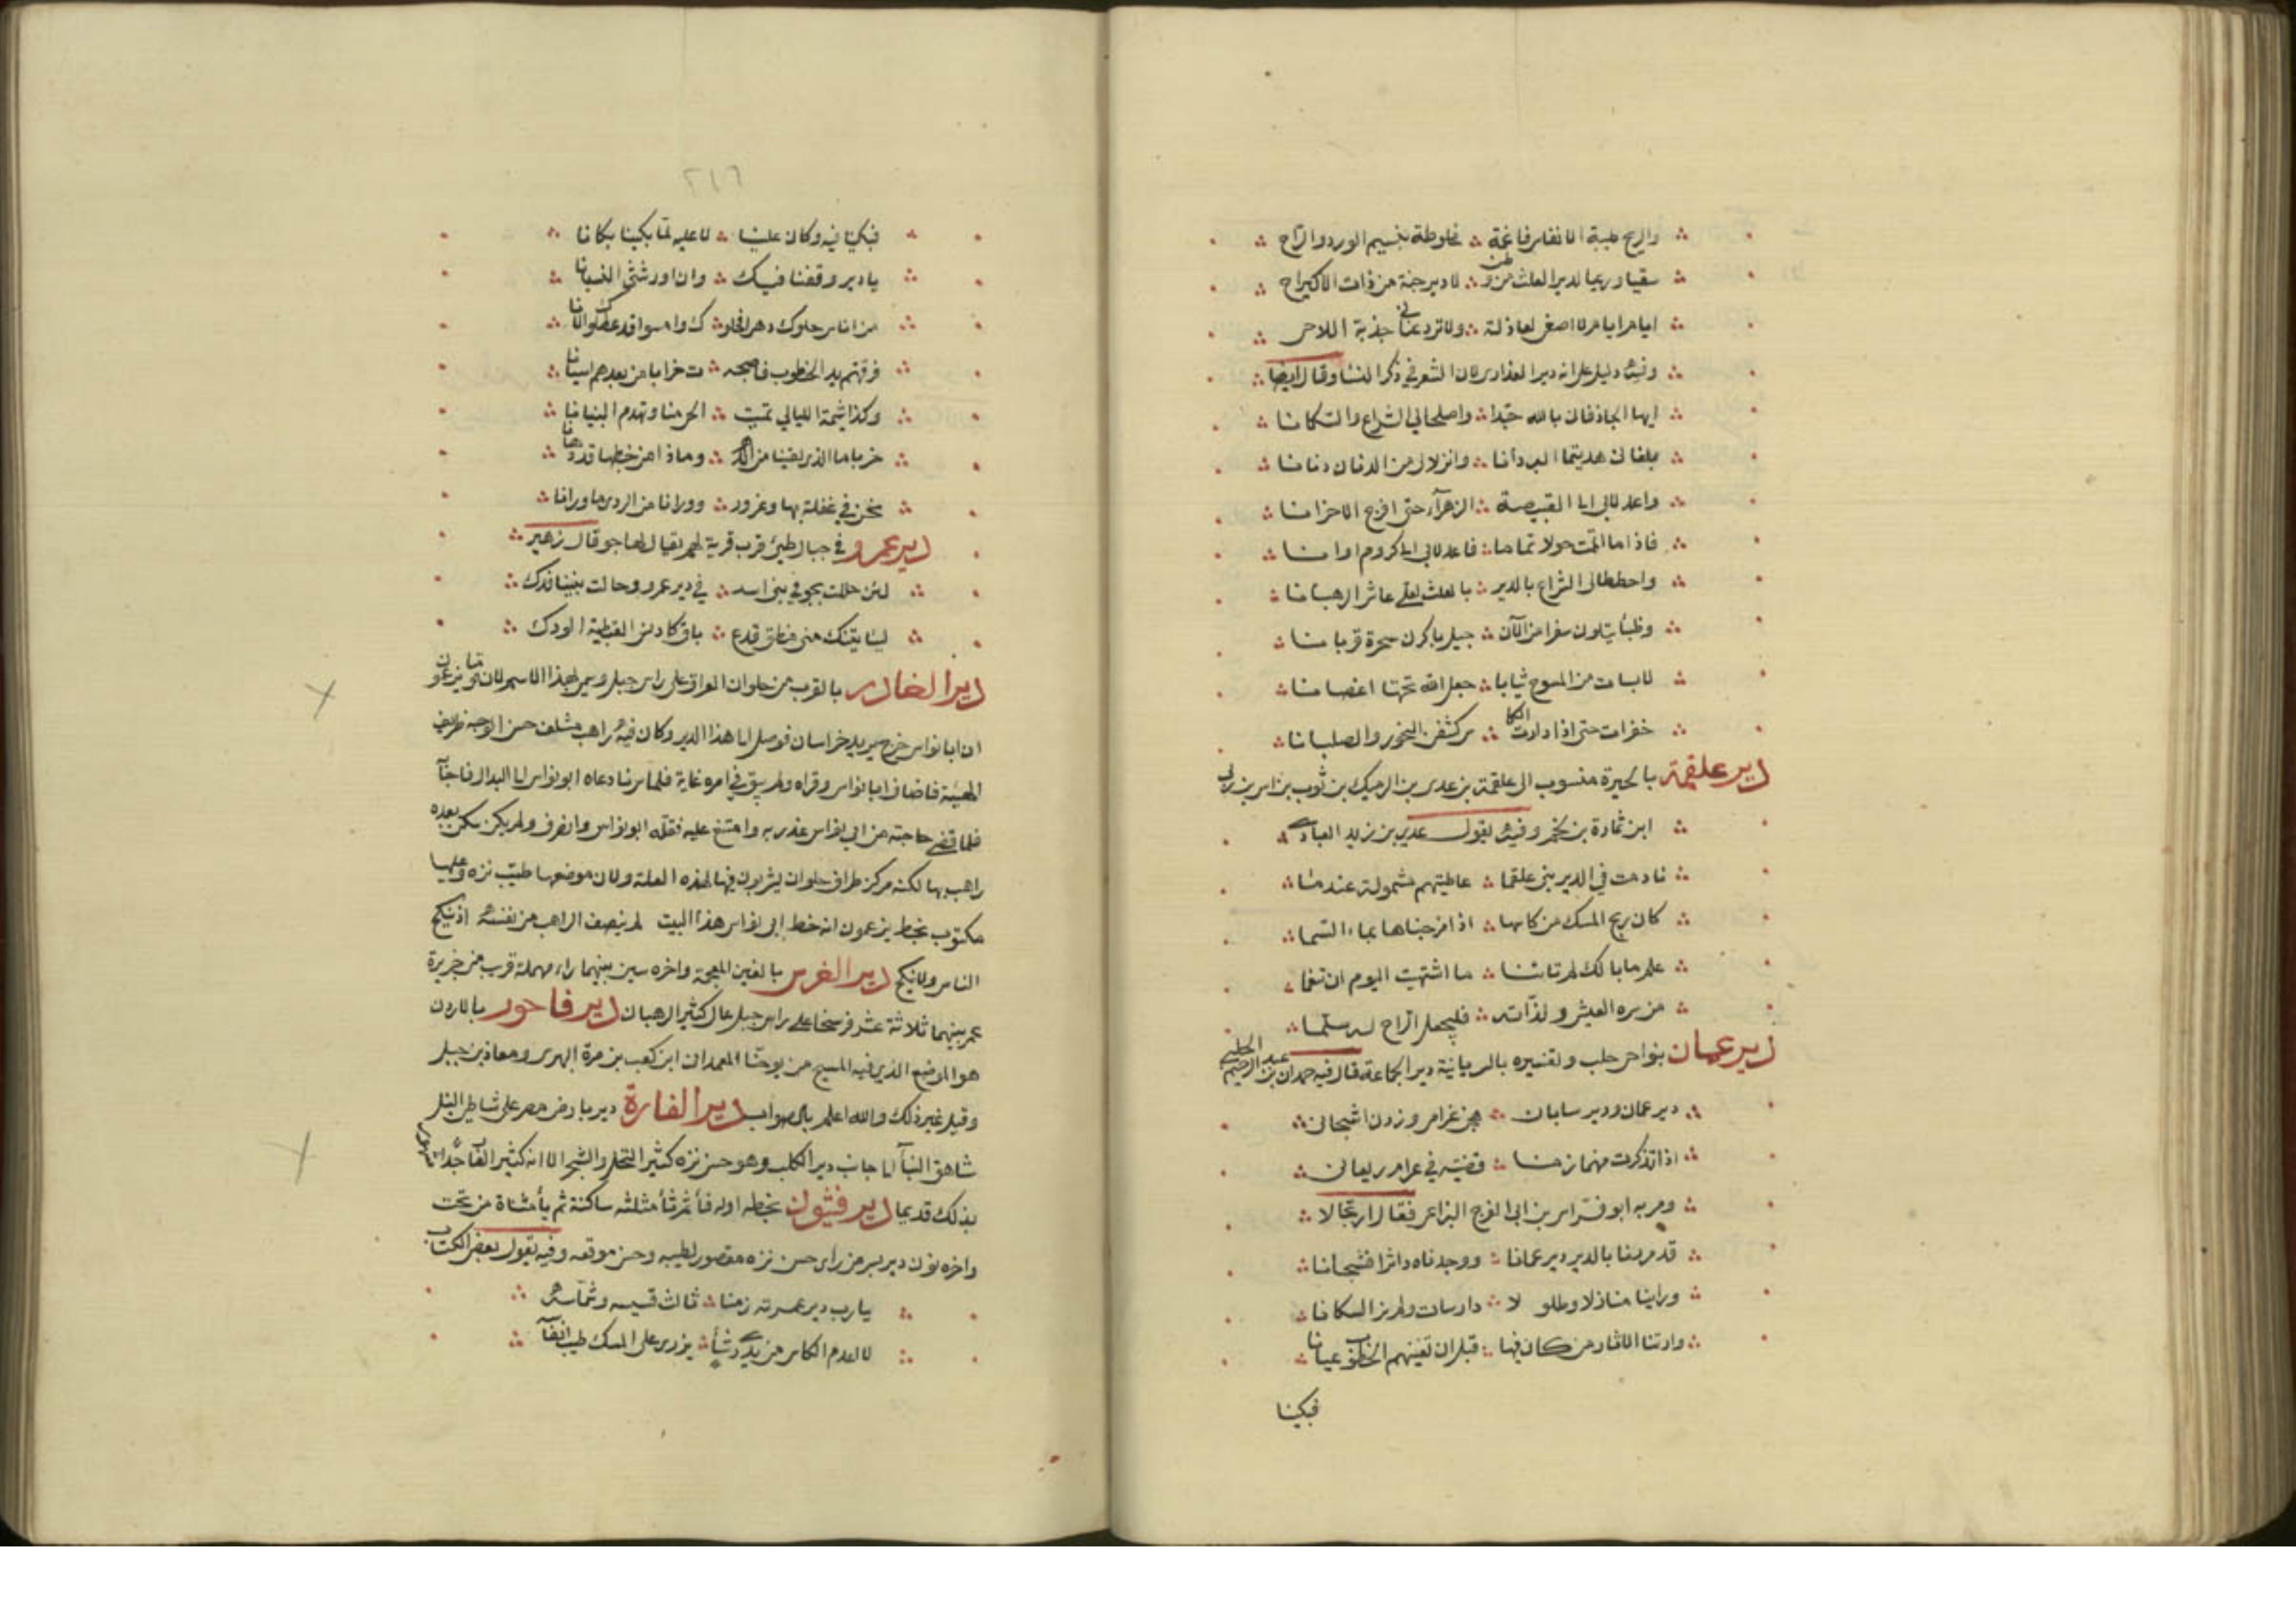 والريح طيبة الانفاس فاغمة ∴ مخلوطة بنسيم الورد والراح
سقيا ورعيا لدير العلث من وطن ∴ لا دير حنة من ذات الاكيراح
ايام ايام لا اصغى لعاذلة ∴ ولا ترد عناني جذبة اللاحى
وفيه دليل على انه دير العذارى لان الشعر في ذكر النسا وقال ايضا
ايها الجاذفان بالله جدا ∴ واصلحا لي الشراع والسكانا
بلغاني هديتما البردانا ∴ وانزلا لي من الدنان دنانا
واعدلا بي الى القبيصة ∴ الزهراء حتى افرج الاحزانا
فاذا ما اقمت حولا تماما ∴ فاعدلا بي الى كروم اوانا
واحططا لى الشراع بالدير ∴ بالعلث لعلى عاشر الرهبانا
وظبأ يتلون سفرا من الآن ∴ جيل باكرن سحرة قربانا
لابسات من المسوح ثيابا ∴ جعل الله تحتها اغصانا
خفرات حتى اذا دارت الكا ∴ س كشفن النحور والصلبانا
دير علقمة بالحيرة منسوب الى علقمة بن عدى بن الرميك بن ثوب بن اس بن ربى
ابن نمارة بن لخم وفيه يقول عدى بن زيد العبادى
نادمت في الدير بنى علقما ∴ عاطيتهم مشمولة عندما
كان ريح المسك من كاسها ∴ اذا مزجناها بماء السما
علم ما بالك لم تاتنا ∴ ما اشتهيت اليوم ان تنعما
من سره العيش ولذاته ∴ فليجعل الراح له سلما
دير عمان بنواحى حلب وتفسيره بالسريانية دير الجماعة قال فيه حمدان بن عبد الرحيم الحلبى
دير عمان ودير سابان ∴ هجن غرامى وزدن اشجانى
اذا تذكرت منهما زمنا ∴ قضيته في عرام ريعانى
ومر به ابو فراس بن ابى الفرج البزاعى فقال ارتجالا
قد مررنا بالدير دير عمانا ∴ ووجدناه داثرا فشجانا
وراينا منازلا وطلو لا ∴ دارسات ولم نر السكانا
وارتنا الاثار من كان فيها ∴ قبل ان تفنيهم الخطوب عيانا
فبكينا
٢١٦
فبكينا فيه وكان علينا ∴ لا عليه لما بكينا بكانا
يا دير وقفنا فيك ∴ وان اورثتنى النسيانا
من اناس حلوك دهرا فخلو ∴ ك وامسوا قد عطلوك الانا
فرقتهم يد الخطوب فاصبحـ ∴ ت خرابا من بعدهم اسيانا
وكذا شيمة الليالي تميت ∴ الحى منا وتهدم البنيانا
حربا ما الذي لقينا من الدهر ∴ وماذا من خطبها قد دهانا
نحن في غفلة بها وغرور ∴ وورانا من الردى ما ورانا
دير عمرو في جبال طيئ قرب قرية لهم يقال لها جو قال زهير
لئن حللت بجو في بنى اسد ∴ في دير عمرو وحالت بيننا فدك
لياتينك منى منطق قدع ∴ باق كما دنس القبطية الودك
دير الغادر بالقرب من حلوان العراق على راس جبل وسمى بهذا الاسم لان
ان ابا نواس خرج يريد خراسان فوصل الى هذا الدير وكان فيه راهب حسن الوجه ظريف
الهيئة فاضاف ابا نواس وقراه ولم يبق في امره غاية فلما سرنا دعاه ابو نواس الى البدال فاجابه
فلما قضى حاجته من ابي نواس غدر به وامتنع عليه فقتله ابو نواس وانصرف ولم يكن يسكن بعده
راهب بها لكنه مركز طراق حلوان يشربون فيها لهذه العلة ولان موضعها طيب نزه وعليها
مكتوب بخط يزعمون انه خط ابى نواس هذا البيت لم ينصف الراهب من نفسه اذ ينكح
الناس ولا ينكح دير الغرس بالغين المعجمة واخره سين بينهما راء مهملة قرب من جزيرة
عمر بينهما ثلاثة عشر فرسخا على راس جبل عال كثير الرهبان دير فاخور بالاردن
هو الموضع الذي فيه المسيح من يوحنا المعمدان ابن كعب بن مرة البهرى ومعاذ بن جبل
وقيل غير ذلك والله اعلم بالصواب دير الفارة دير بارض مصر على شاطى النيل
شاهق البنآ الى جانب دير الكلب وهو حسن نزه كثير النخل والشجر الا انه كثير الفأ جدا
بذلك قديما دير فثيون بخطه اوله فأ ثم ثأ مثلثه ساكنة ثم يأ مثناة من تحت
واخره نون دير بسر من راى حسن نزه مقصور لطيبه وحسن موقعه وفيه يقول بعض الكتاب
يا رب دير عمرته زمنا ∴ ثالث قسيسه وشماسه
لا اعدم الكاس من يدى رشأ ∴ يزرى على المسك طيب انفآ